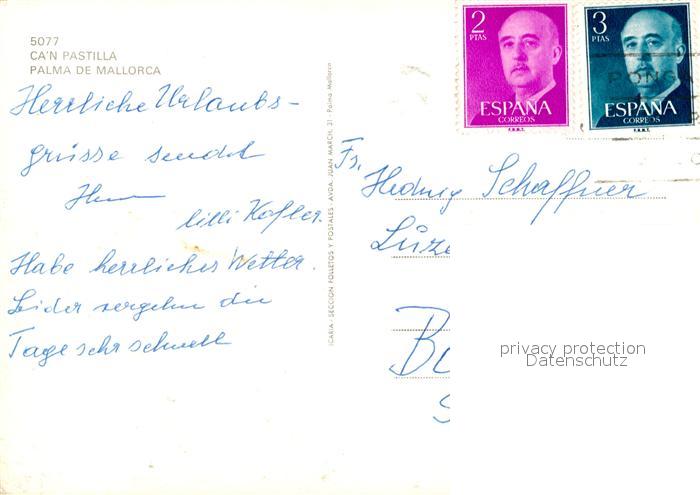 5077
CA'N PASTILLA
PALMA DE MALLORCA
Herrliche Urlaubs-
grüsse sendet
Ihnen
Lilli Kofler.
Habe herrliches Wetter.
Leider vergehn die
Tage sehr schnell
ICARIA - SECCION FOLLETOS Y POSTALES - AVDA. JUAN MARCH, 31 - Palma Mallorca
2
PTAS
ESPAÑA
CORREOS
F.N.M.T.
3
PTAS
ESPAÑA
CORREOS
F.N.M.T.
PONGA
Fr.
Hedwig Schaffner
privacy protection
Datenschutz